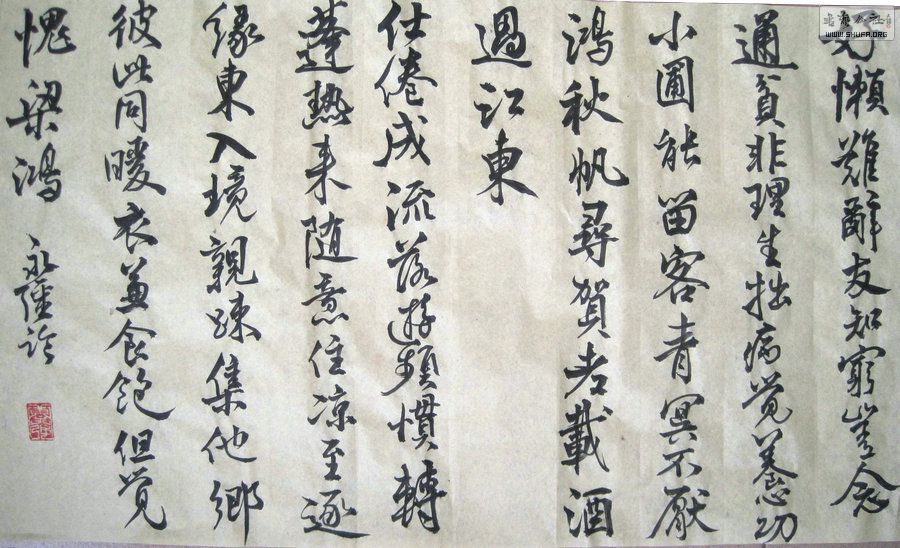 好懶難辭友知窮豈念
通貧非理生拙病覺養心功
小圃能留客青冥不厭
鴻秋帆尋賀老載酒
過江東
仕倦成流落遊頻慣轉
蓬熱来随意住凉至逐
緣東入境親踈集他鄉
彼此同暖衣兼食飽但覺
愧梁鴻
永 臨
WWW.SHUFA.ORG